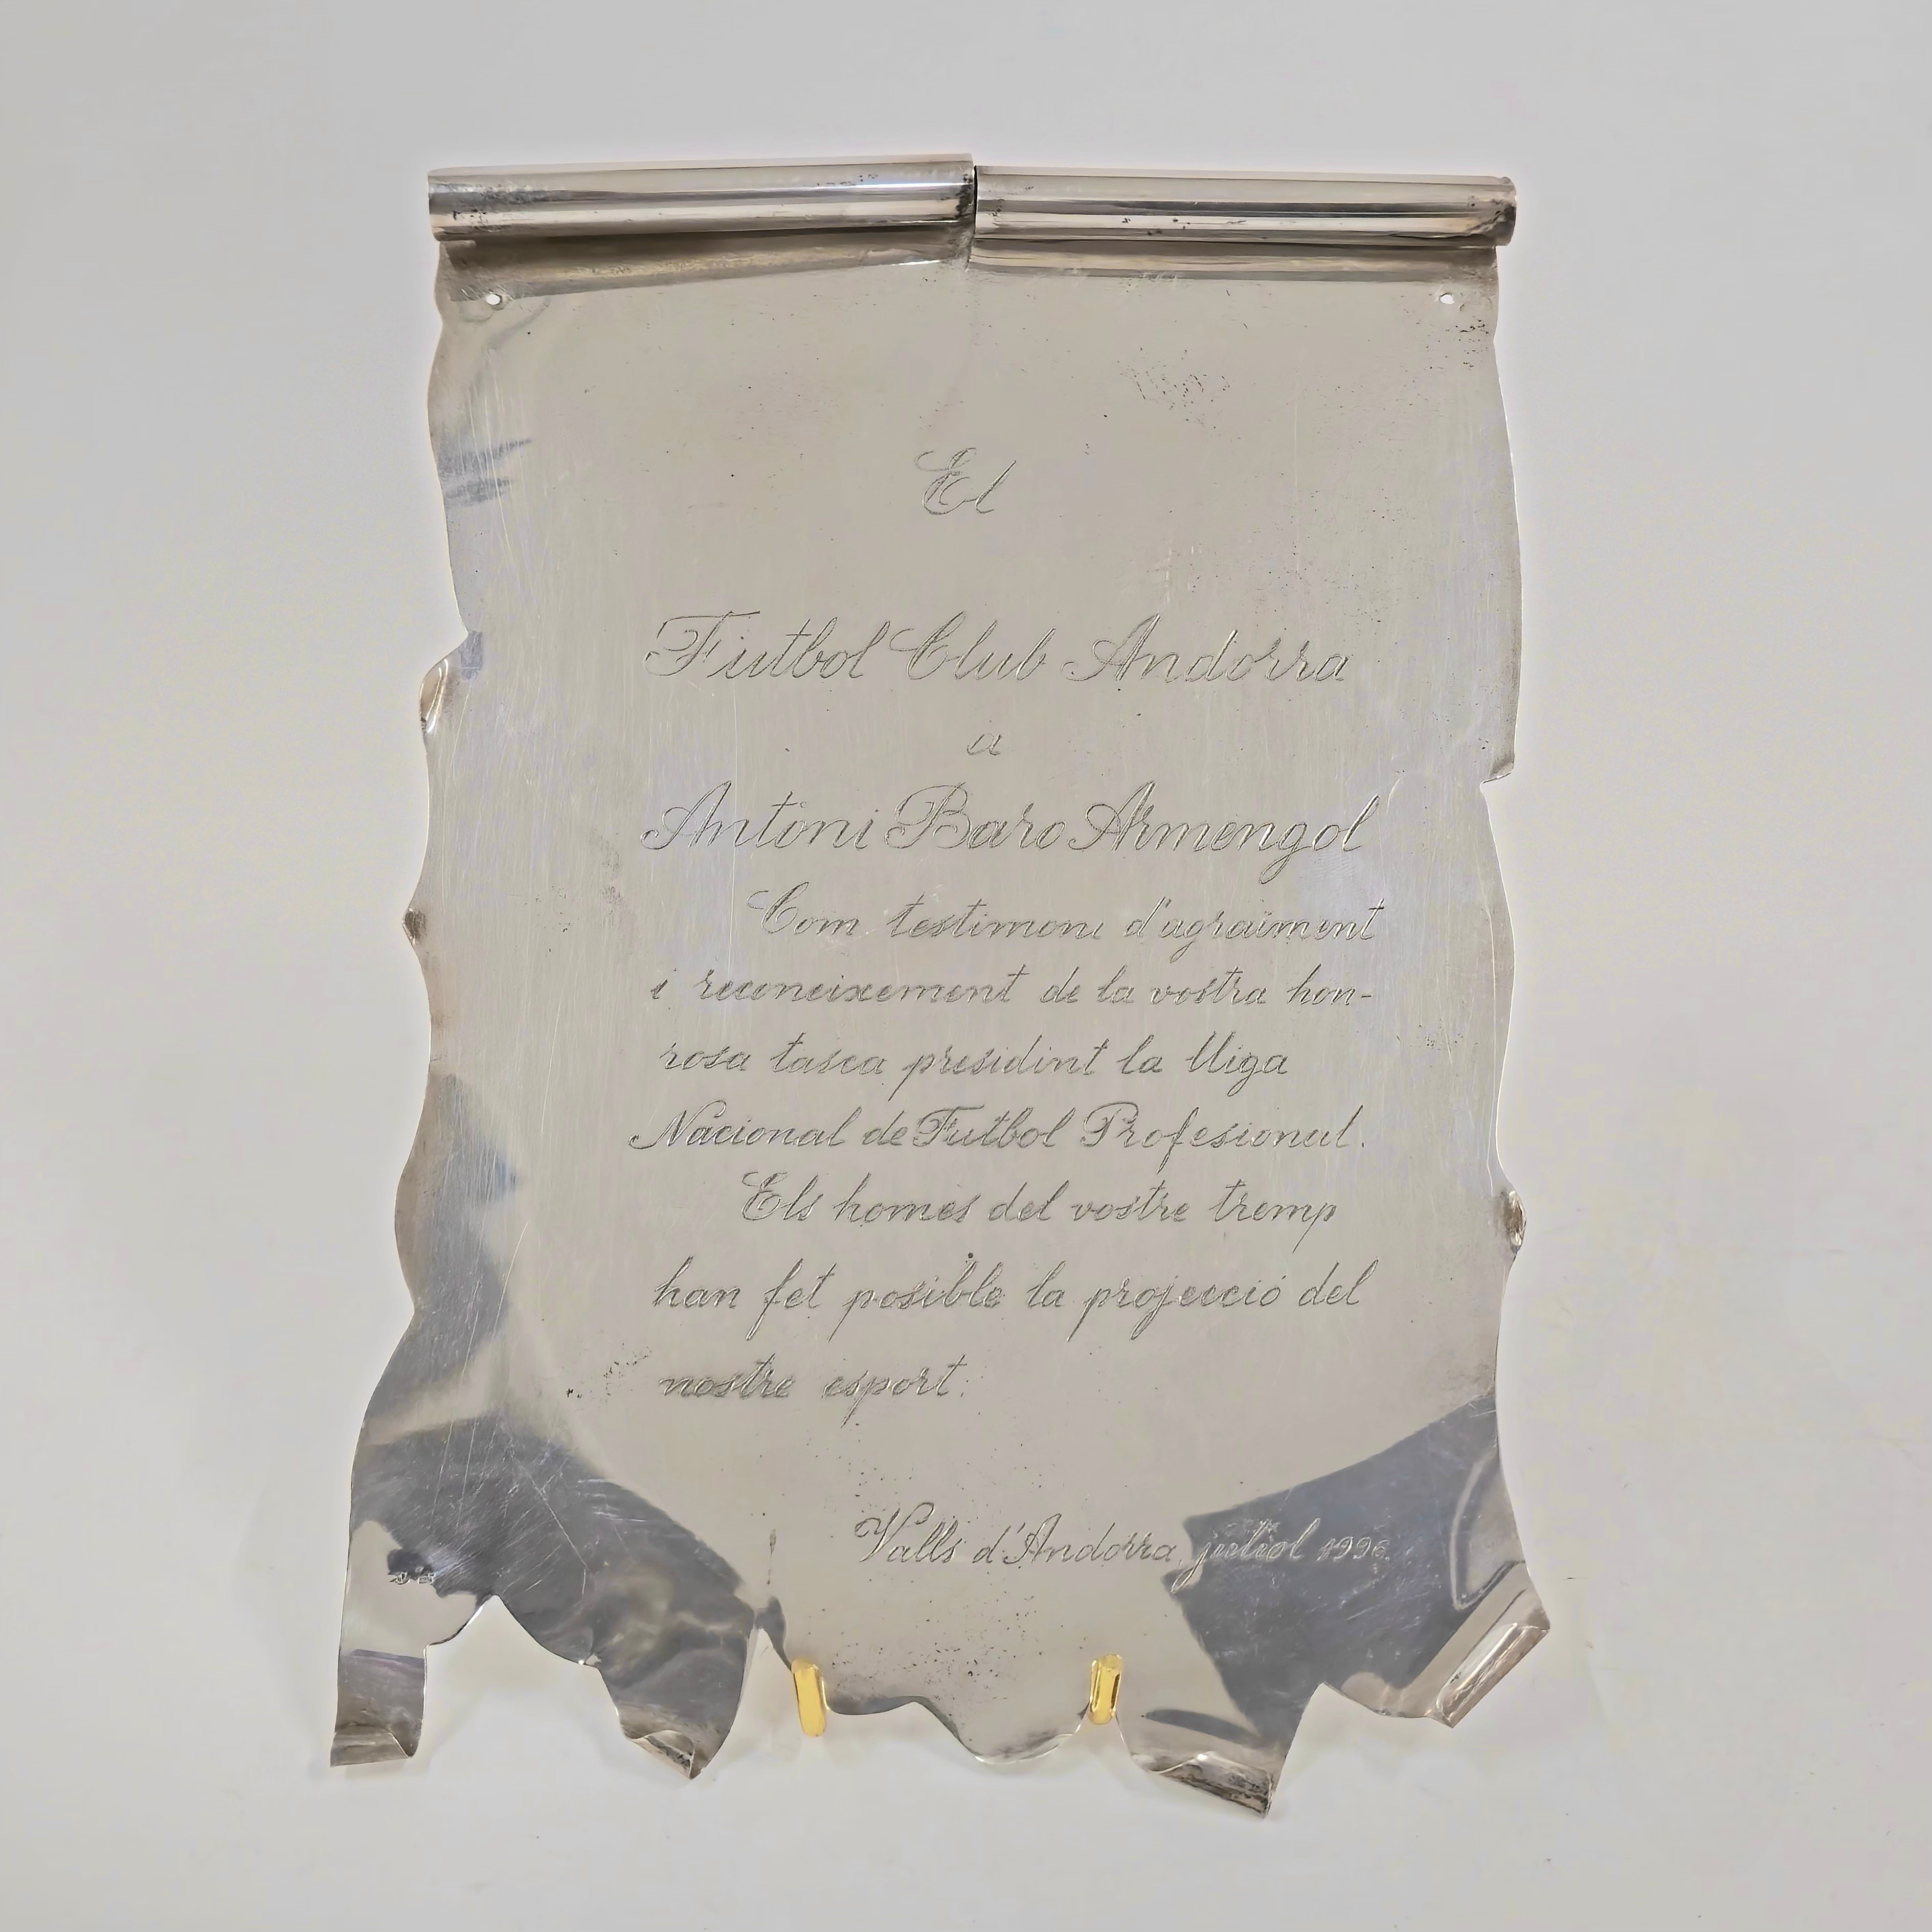 El
Futbol Club Andorra
a
Antoni Baro Armengol
Com testimoni d'agraïment
i reconeixement de la vostra hon-
rosa tasca presidint la lliga
Nacional de Futbol Profesional.
Els homes del vostre tremp
han fet posible la projecció del
nostre esport.
Valls d'Andorra, juliol 1996.